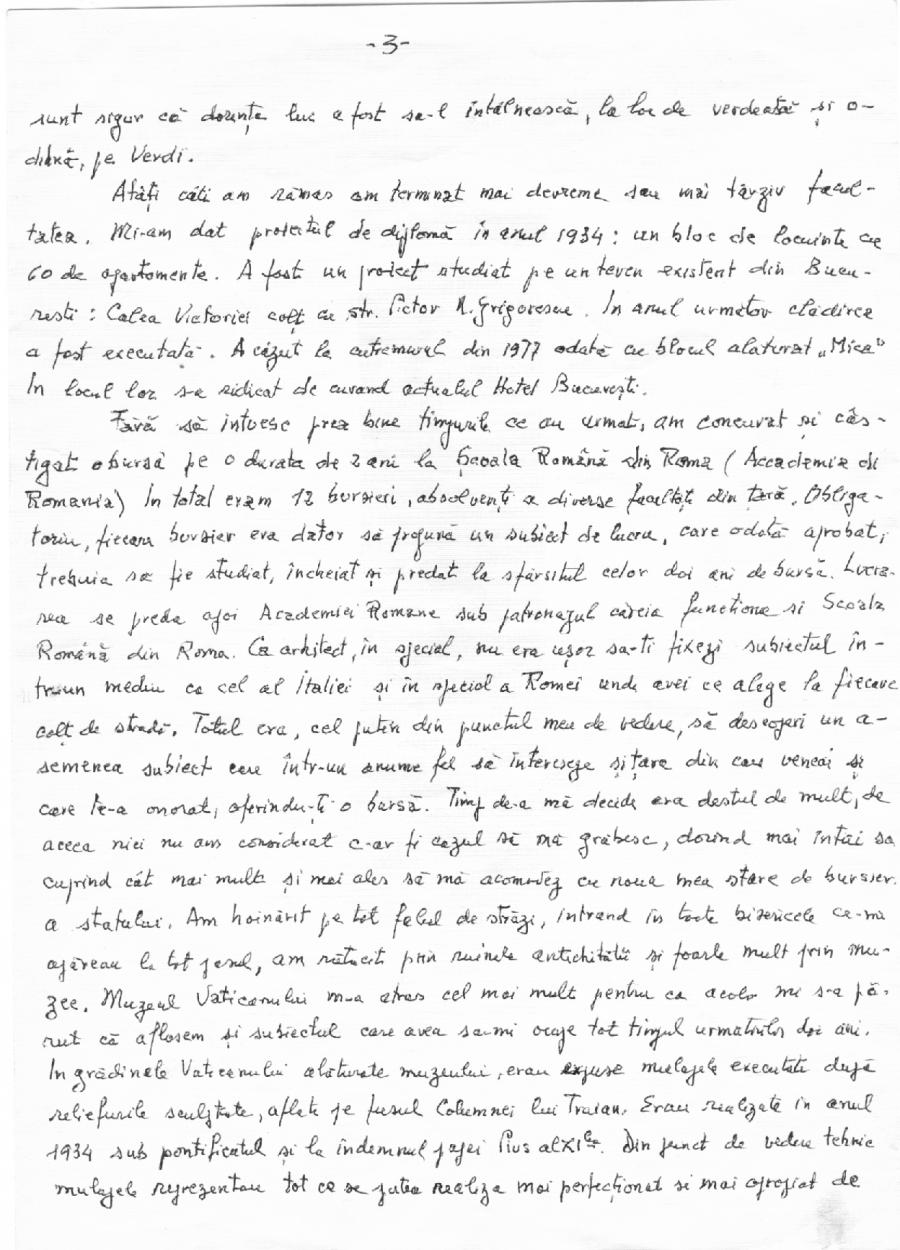 -3-
sunt sigur că dorința lui a fost sa-l întâlnească, la loc de verdeață și o-
dihnă, pe Verdi.
Atâți câti am rămas am terminat mai devreme sau mai târziu facul-
tatea. Mi-am dat proiectul de diplomă în anul 1934: un bloc de locuinte cu
60 de apartamente. A fost un proiect studiat pe un teren existent din Bucu-
resti: Calea Victoriei colț cu str. Pictor N. Grigorescu. In anul următor clădirea
a fost executată. A căzut la cutremurul din 1977 odată cu blocul alaturat „Mica"
In locul lor s-a ridicat de curand actualul Hotel București.
Fără să intuesc prea bine timpurile ce au urmat, am concurat și câs-
tigat o bursă pe o durata de 2 ani la Școala Română din Roma (Accademia di
Romania) In total eram 12 bursieri, absolvenți a diverse facultăți din țară. Obliga-
toriu, fiecare bursier era dator să propună un subiect de lucru, care odată aprobat,
trebuia sa fie studiat, încheiat și predat la sfârsitul celor doi ani de bursă. Lucra-
rea se preda apoi Academiei Romane sub patronajul careia functiona si Scoala
Română din Roma. Ca arhitect, în special, nu era ușor sa-ti fixezi subiectul în-
tr-un mediu ca cel al Italiei și în special a Romei unde avei ce alege la fiecare
colț de stradă. Totul era, cel putin din punctul meu de vedere, să descoperi un a-
semenea subiect care într-un anume fel să intereseze și țara din care veneai și
care te-a onorat, oferindu-ți o bursă. Timp de-a mă decide era destul de mult, de
aceea nici nu am considerat c-ar fi cazul să mă grăbesc, dorind mai întâi sa
cuprind cât mai mult și mai ales să mă acomodez cu noua mea stare de bursier
a statului. Am hoinărit pe tot felul de străzi, intrand în toate bisericele ce-mi
apăreau la tot pasul, am rătacit prin ruinele antichitătii și foarte mult prin mu-
zee. Muzeul Vaticanului m-a atras cel mai mult pentru ca acolo mi s-a pă-
rut că aflasem și subiectul care avea sa-mi ocupe tot timpul urmatorilor doi ani.
In grădinele Vaticanului alăturate muzeului, erau expuse mulajele executate după
reliefurile sculptate, aflate pe fusul Columnei lui Traian. Erau realizate in anul
1934 sub pontificatul și la îndemnul papei Pius al XI lea. Din punct de vedere tehnic
mulajele reprezentau tot ce se putea realiza mai perfecționat si mai apropiat de